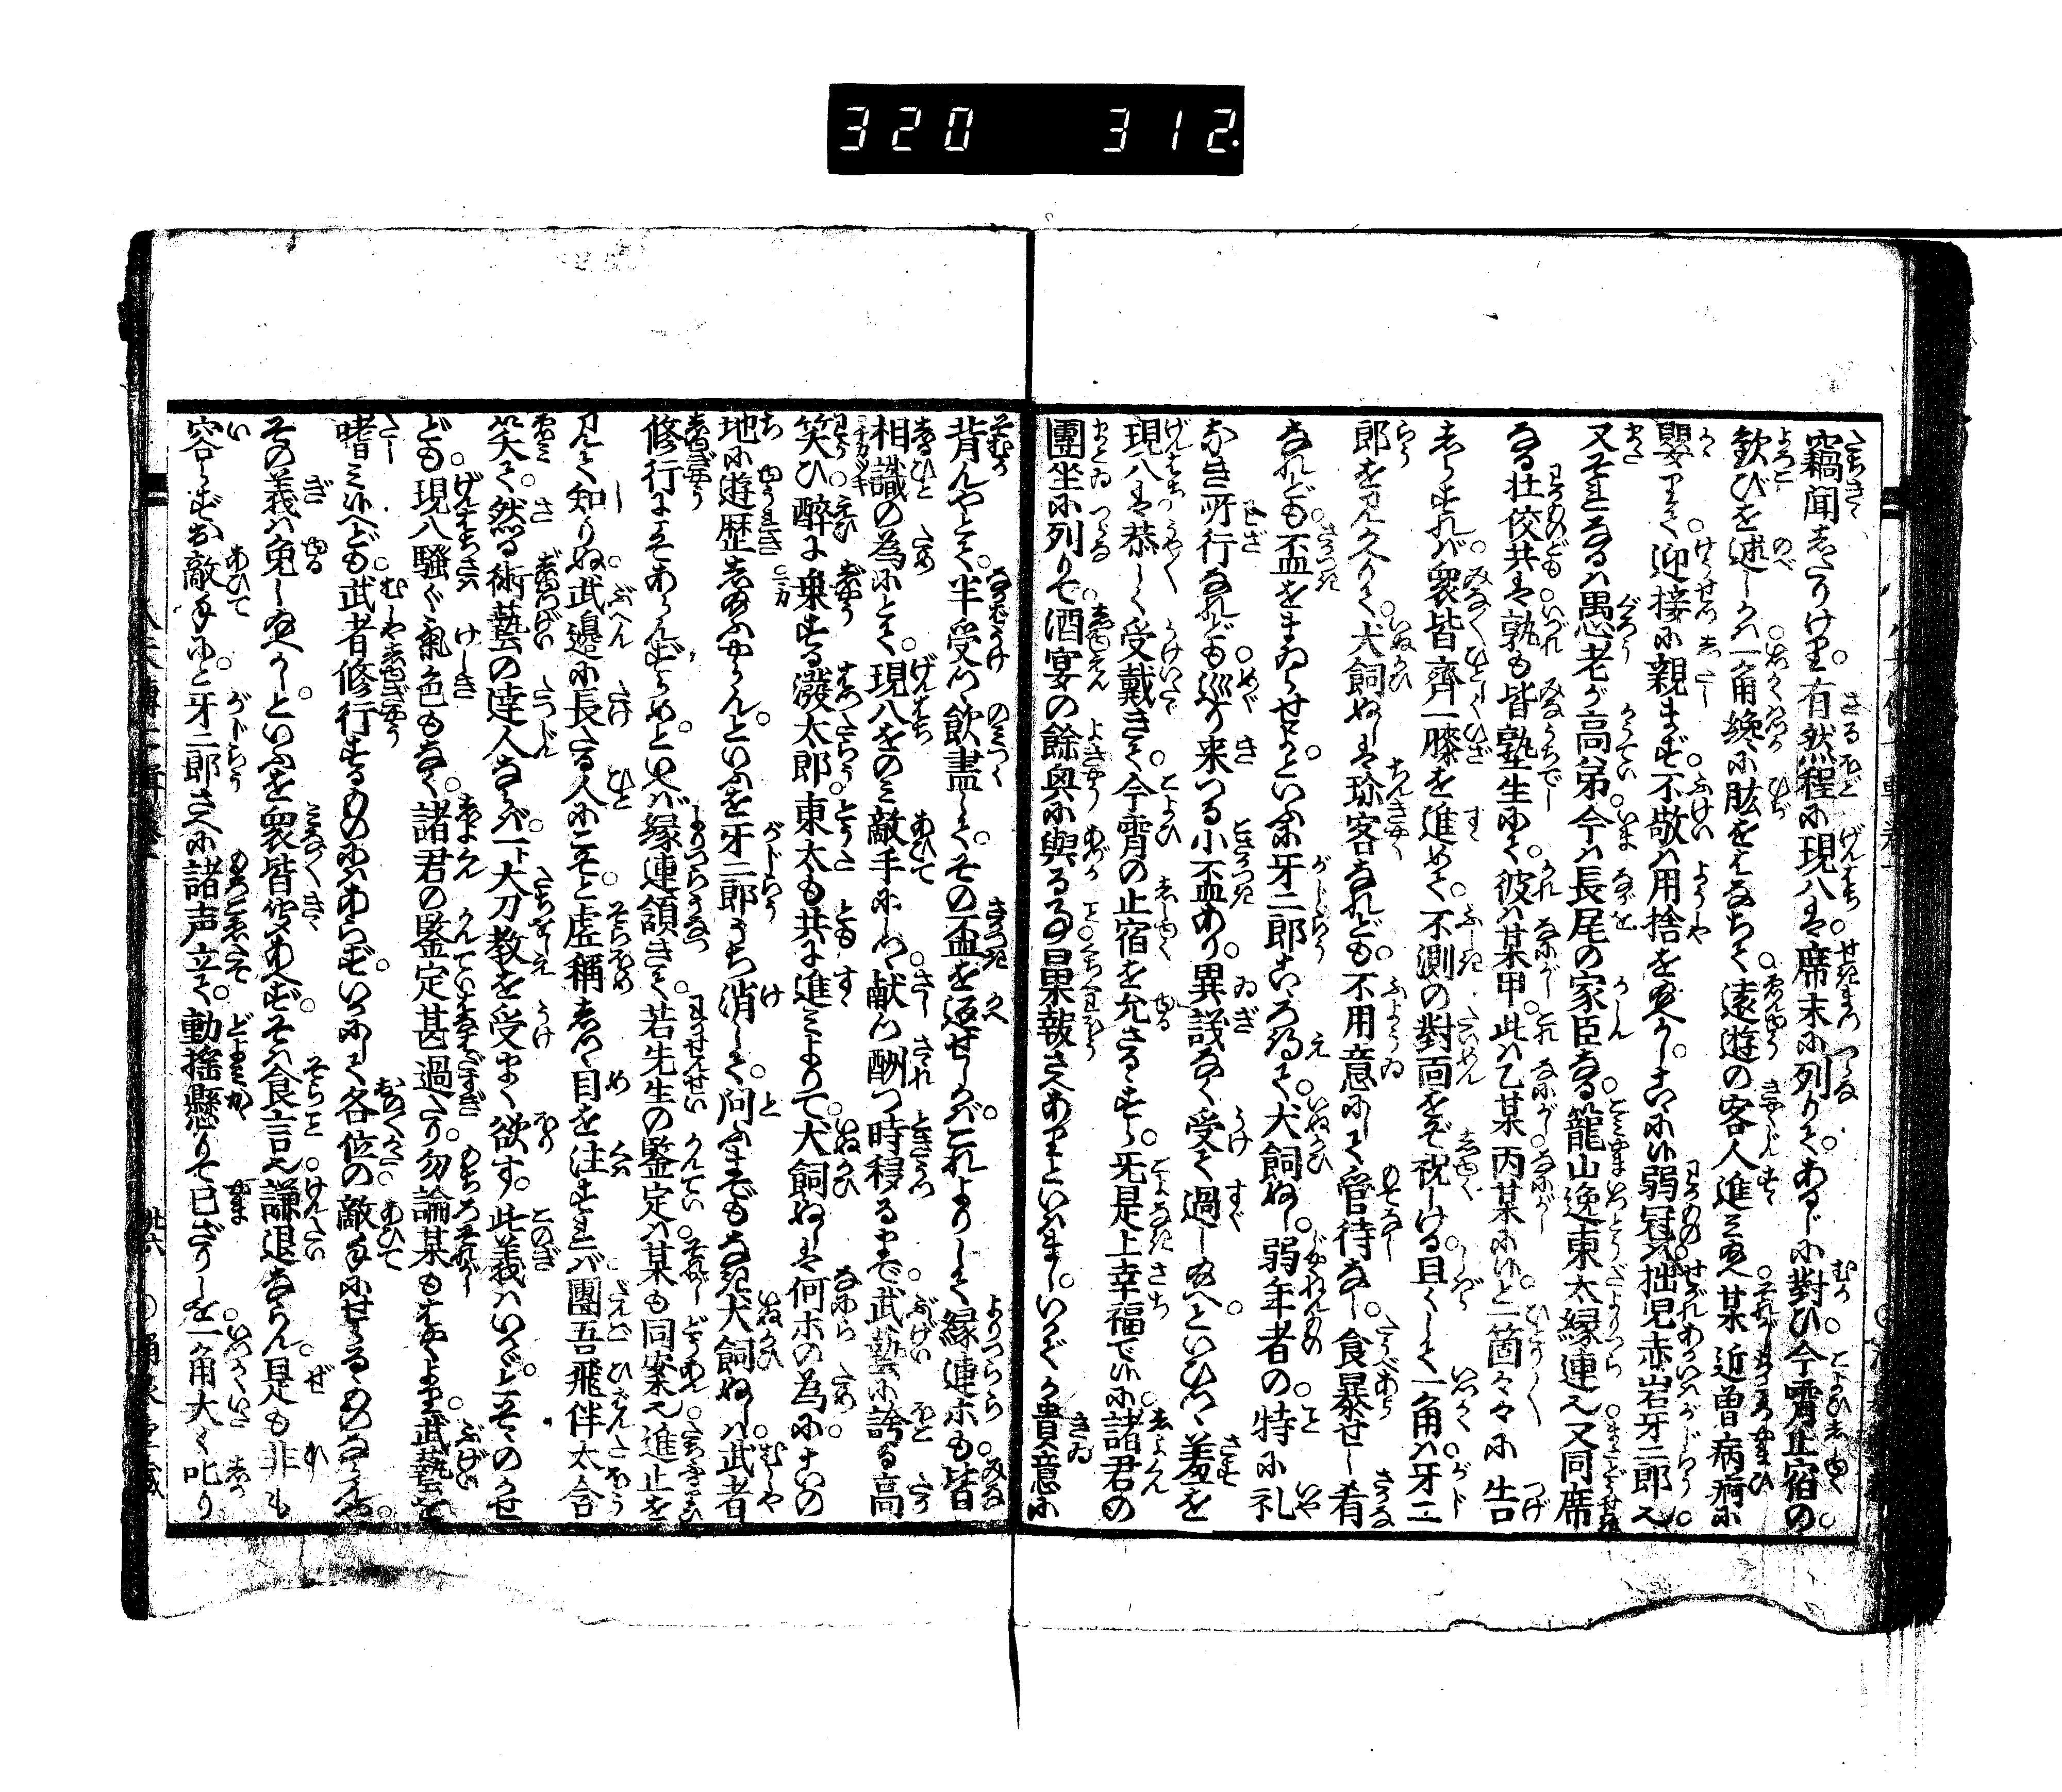 320 312.
竊聞したりけり。有然程に現八は。席末に列りて。あるじに對ひ。今霄止宿の。
歓びを述しかバ。一角纔に肱をはなちて。遠遊の客人進み給へ。某近曽病痾に
嬰りて。迎接に親まず。不敬ハ用捨を給へかし。こゝに侍る弱冠ハ。拙児赤岩牙二郎也。
又それなるハ愚老が高弟。今ハ長尾の家臣なる。籠山逸東太縁連也。又同席
なる壮佼共は。孰も皆塾生にて。彼ハ某甲。此ハ乙某丙某に侍と。一箇々々に告
しらすれバ。衆皆齊一膝を進めて。不測の對面をぞ祝しける。且くして一角ハ牙二
郎を見かへりて。犬飼ぬしは珍客なれども。不用意にして管待なし。食暴せし肴
なれども。盃をまゐらせよ。といふに牙二郎こゝろ得て。犬飼ぬし。弱年者の特に礼
なき所行なれども。巡り来つる小盃あり。異議なく受て過し給へ。といひつゝ羞を
現八は恭しく受戴きて。今霄の止宿を允さるゝすら。死是上幸福で侍に。諸君の
團坐に列りて。酒宴の餘興に與る事。果報さへありといはまし。いかでか貴意に
背んやとて。半受つゝ飲盡して。その盃を返せしかバ。これよりして縁連ホも皆
相識の為にとて。現八をのミ敵手にしつ。献つ酬つ時移るまで。武藝に誇る高
笑ひ。醉に乗する溌太郎。東太も共に進ミよりて。犬飼ぬしは何ホの為に。こゝの
地に遊歴し給ふやらん。といふを牙二郎うち消して。問ふまでもなき犬飼ぬしハ。武者
修行にこそあらんずらめ。といへバ縁連頷きて。若先生の鑒定ハ。某も同案也。進止を
見て知りぬ。武邊に長たる人にこそと。虚稱しつゝ目を注すれバ。團吾飛伴太合
笑て。然る術藝の達人ならバ。一ト大刀教を受まく欲す。此義ハいかで。とそゝのかせ
ども。現八騒ぐ氣色もなく。諸君の鑒定甚過たり。勿論某もはやくより。武藝を
嗜ミ侍へども。武者修行するものにハあらず。いかにして各位の敵手にせらるゝものならんや。
その義ハ免し給へかし。といふを衆皆听あへず。そハ食言也。謙退ならん。是も非も
容らず敵手にと。牙二郎さへに諸声立て。動揺懸りて已ざりしを。一角大く叱り